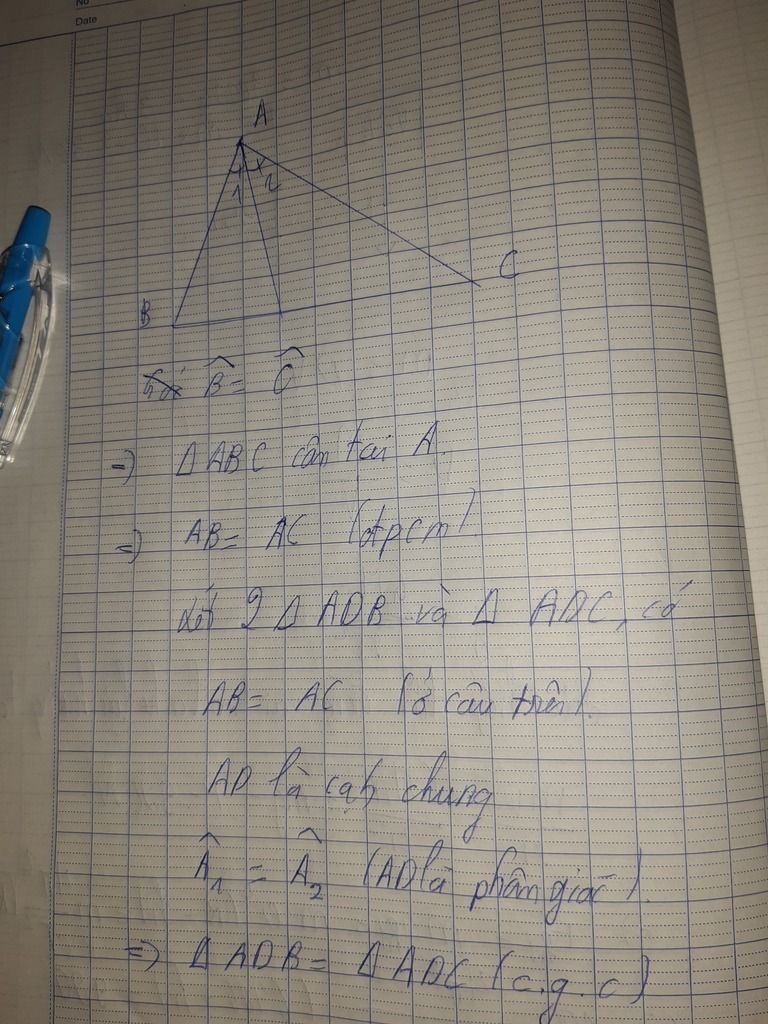 No
Date
A
1 2
B
C
B̂ = Ĉ
=> Δ ABC cân tại A.
=> AB = AC (đpcm).
Xét 2 Δ ADB và Δ ADC, có
AB = AC (ở câu trên).
AD là cạh chung
Â₁ = Â₂ (AD là phân giác).
=> Δ ADB = Δ ADC (c.g.c)